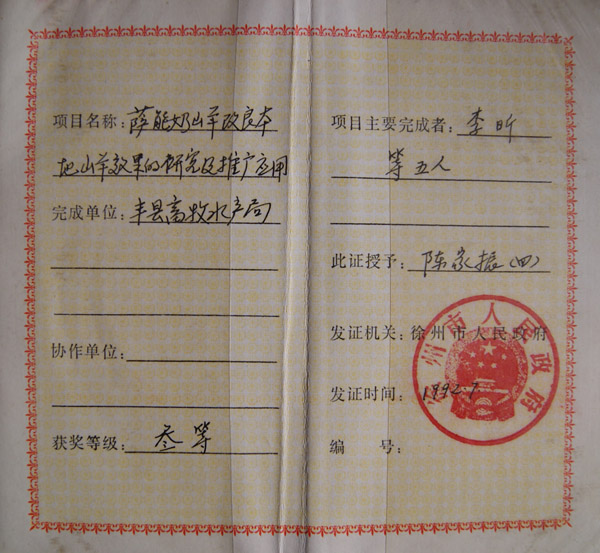 项目名称：萨能奶山羊改良本
地山羊效果的研究及推广应用
完成单位：丰县畜牧水产局
协作单位：
获奖等级：叁等
项目主要完成者：李昕
等五人
此证授予：陈家振（四）
发证机关：徐州市人民政府
发证时间：1992.7
编 号：
徐州市人民政府